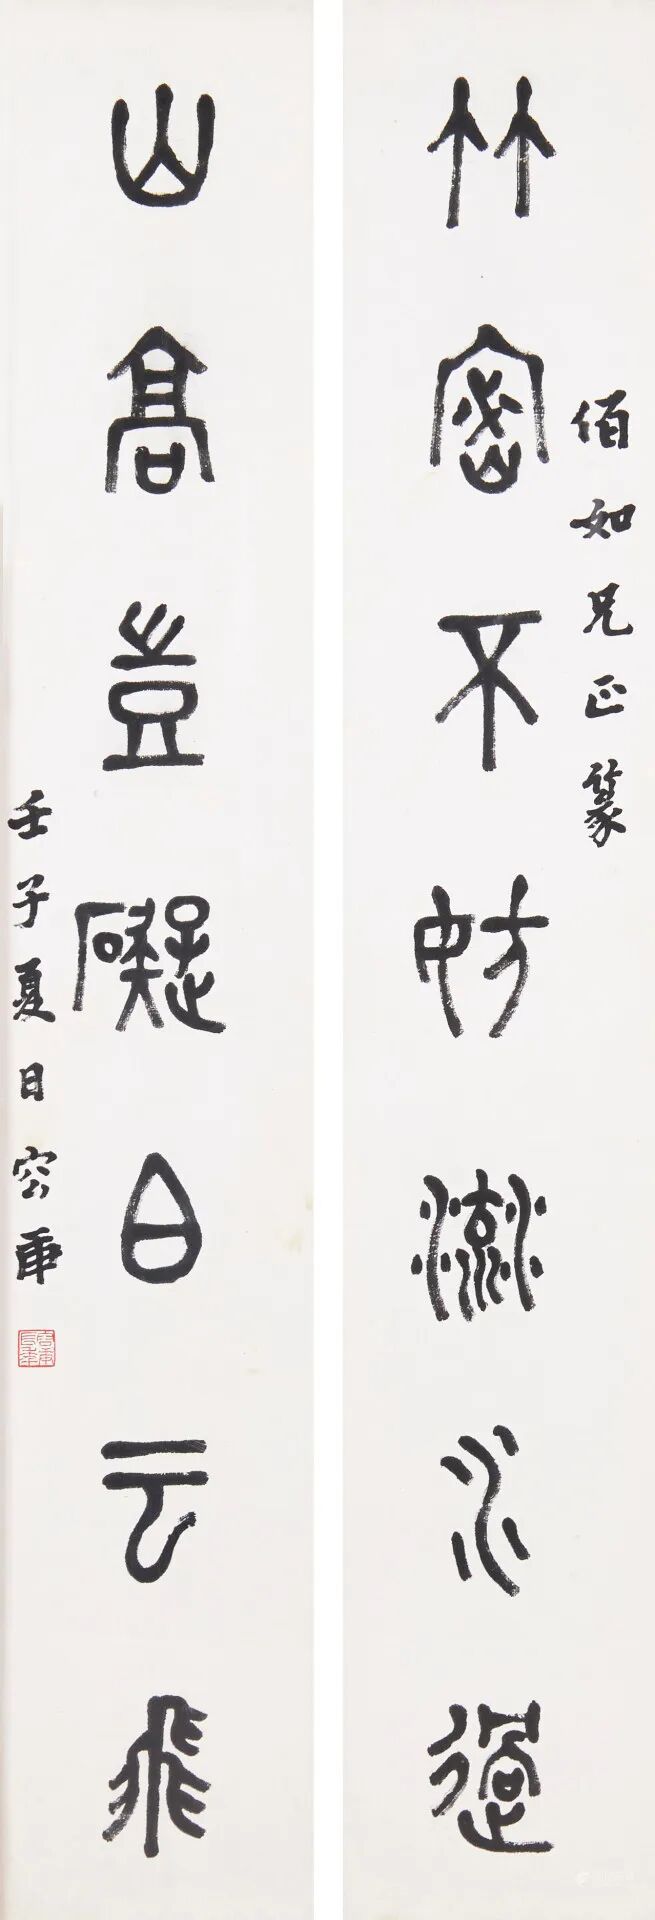 佰如兄正篆
竹密不妨流水過
山高豈礙白云飛
壬子夏日容庚